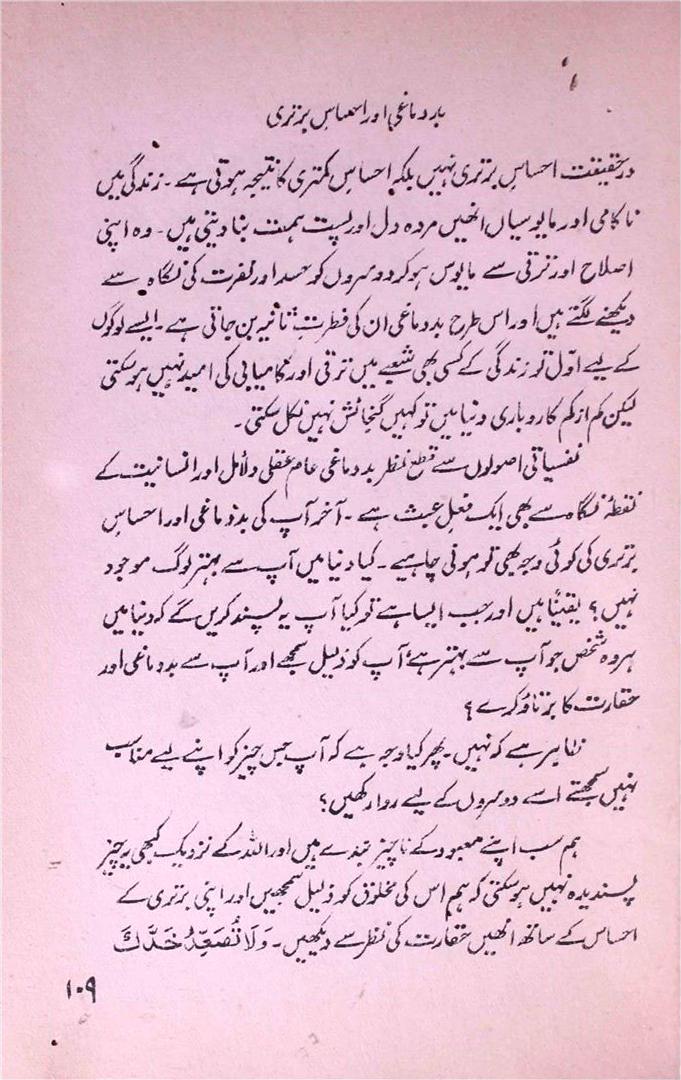 بددماغی اور احساسِ برتری
درحقیقت احساسِ برتری نہیں بلکہ احساسِ کمتری کا نتیجہ ہوتی ہے۔ زندگی میں
ناکامی اور مایوسیاں انھیں مردہ دل اور پست ہمت بنا دیتی ہیں۔ وہ اپنی
اصلاح اور ترقی سے مایوس ہو کر دوسروں کو حسد اور نفرت کی نگاہ سے
دیکھنے لگتے ہیں اور اس طرح بددماغی ان کی فطرتِ ثانیہ بن جاتی ہے۔ ایسے لوگوں
کے لیے اوّل تو زندگی کے کسی بھی شعبے میں ترقی اور کامیابی کی امید نہیں ہو سکتی
لیکن کم از کم کاروباری دنیا میں تو کہیں گنجائش نہیں نکل سکتی۔
نفسیاتی اصولوں سے قطع نظر بددماغی عام عقلی دلائل اور انسانیت کے
نقطۂ نگاہ سے بھی ایک فعلِ عبث ہے۔ آخر آپ کی بددماغی اور احساسِ
برتری کی کوئی وجہ بھی تو ہونی چاہیے۔ کیا دنیا میں آپ سے بہتر لوگ موجود
نہیں؟ یقیناً ہیں اور جب ایسا ہے تو کیا آپ یہ پسند کریں گے کہ دنیا میں
ہر وہ شخص جو آپ سے بہتر ہے آپ کو ذلیل سمجھے اور آپ سے بددماغی اور
حقارت کا برتاؤ کرے؟
ظاہر ہے کہ نہیں۔ پھر کیا وجہ ہے کہ آپ جس چیز کو اپنے لیے مناسب
نہیں سمجھتے اسے دوسروں کے لیے روا رکھیں؟
ہم سب اپنے معبود کے ناچیز بندے ہیں اور اللہ کے نزدیک کبھی یہ چیز
پسندیدہ نہیں ہو سکتی کہ ہم اس کی مخلوق کو ذلیل سمجھیں اور اپنی برتری کے
احساس کے ساتھ انھیں حقارت کی نظر سے دیکھیں۔ وَلَا تُصَعِّرْ خَدَّكَ
۱۰۹